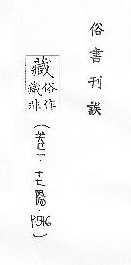 俗書刊誤
藏俗作
蔵非
(卷一.十七陽.P.546)